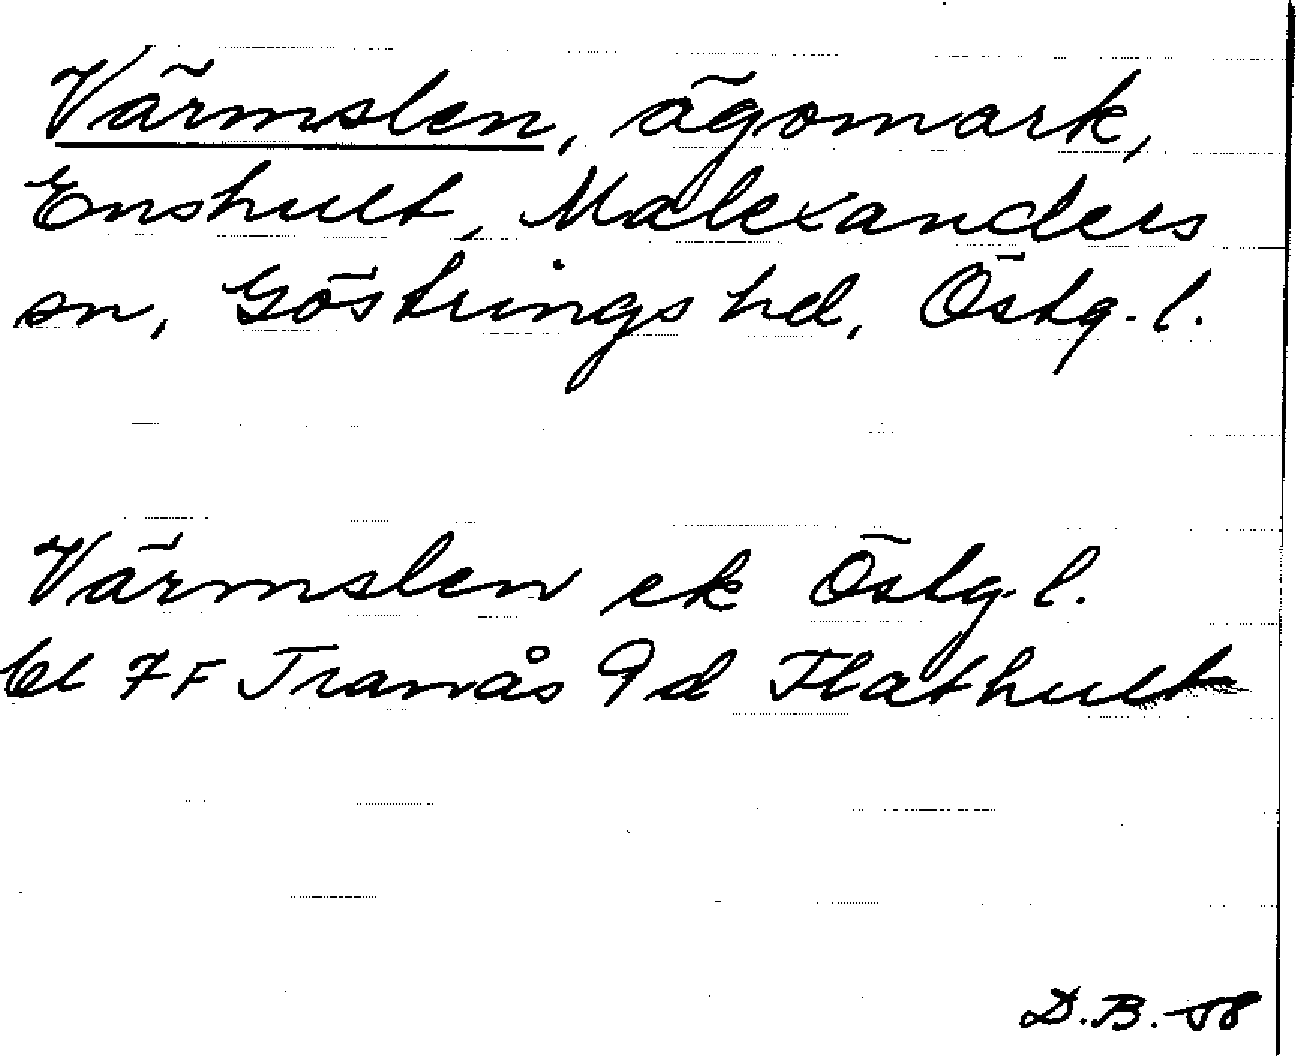 Värmslen, ägomark,
Enshult, Malexanders
sn, Göstrings hd, Östg. l.
Värmslen ek Östg. l.
bl 7F Tranås 9d Flathult
D.B. -58